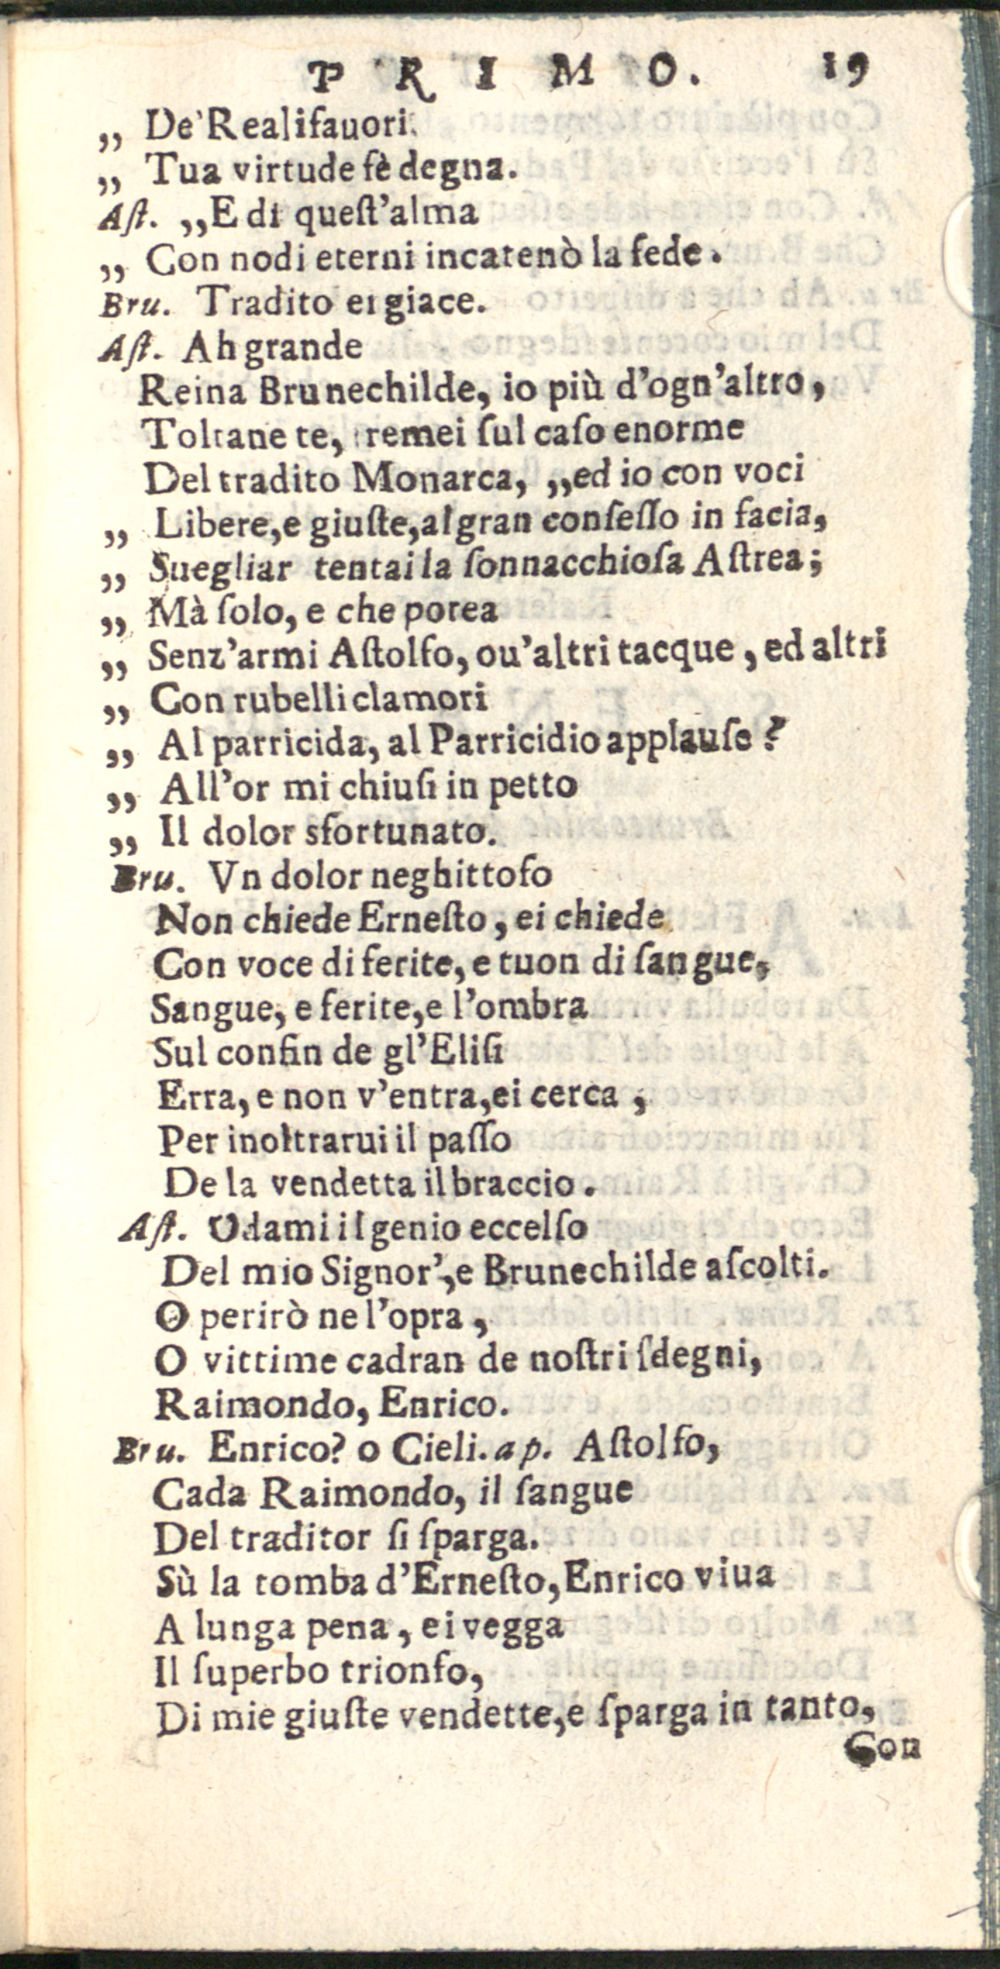 PRIMO. 19
„ De' Reali fauori.
„ Tua virtude fè degna.
Aſt. „E di queſt'alma
„ Con nodi eterni incatenò la fede.
Bru. Tradito ei giace.
Aſt. Ah grande
Reina Brunechilde, io più d'ogn'altro,
Toltane te, tremei ſul caſo enorme
Del tradito Monarca, „ed io con voci
„ Libere, e giuſte, al gran conſeſſo in facia,
„ Suegliar tentai la ſonnacchioſa Aſtrea;
„ Mà ſolo, e che potea
„ Senz'armi Aſtolfo, ou'altri tacque, ed altri
„ Con rubelli clamori
„ Al parricida, al Parricidio applauſe?
„ All'or mi chiuſi in petto
„ Il dolor sfortunato.
Bru. Vn dolor neghittoſo
Non chiede Erneſto, ei chiede
Con voce di ferite, e tuon di ſangue,
Sangue, e ferite, e l'ombra
Sul confin de gl'Eliſi
Erra, e non v'entra, ei cerca,
Per inoltrarui il paſſo
De la vendetta il braccio.
Aſt. Odami il genio eccelſo
Del mio Signor', e Brunechilde aſcolti.
O perirò ne l'opra,
O vittime cadran de noſtri ſdegni,
Raimondo, Enrico.
Bru. Enrico? o Cieli. ap. Aſtolfo,
Cada Raimondo, il ſangue
Del traditor ſi ſparga.
Sù la tomba d'Erneſto, Enrico viua
A lunga pena, ei vegga
Il ſuperbo trionfo,
Di mie giuſte vendette, e ſparga in tanto,
Con